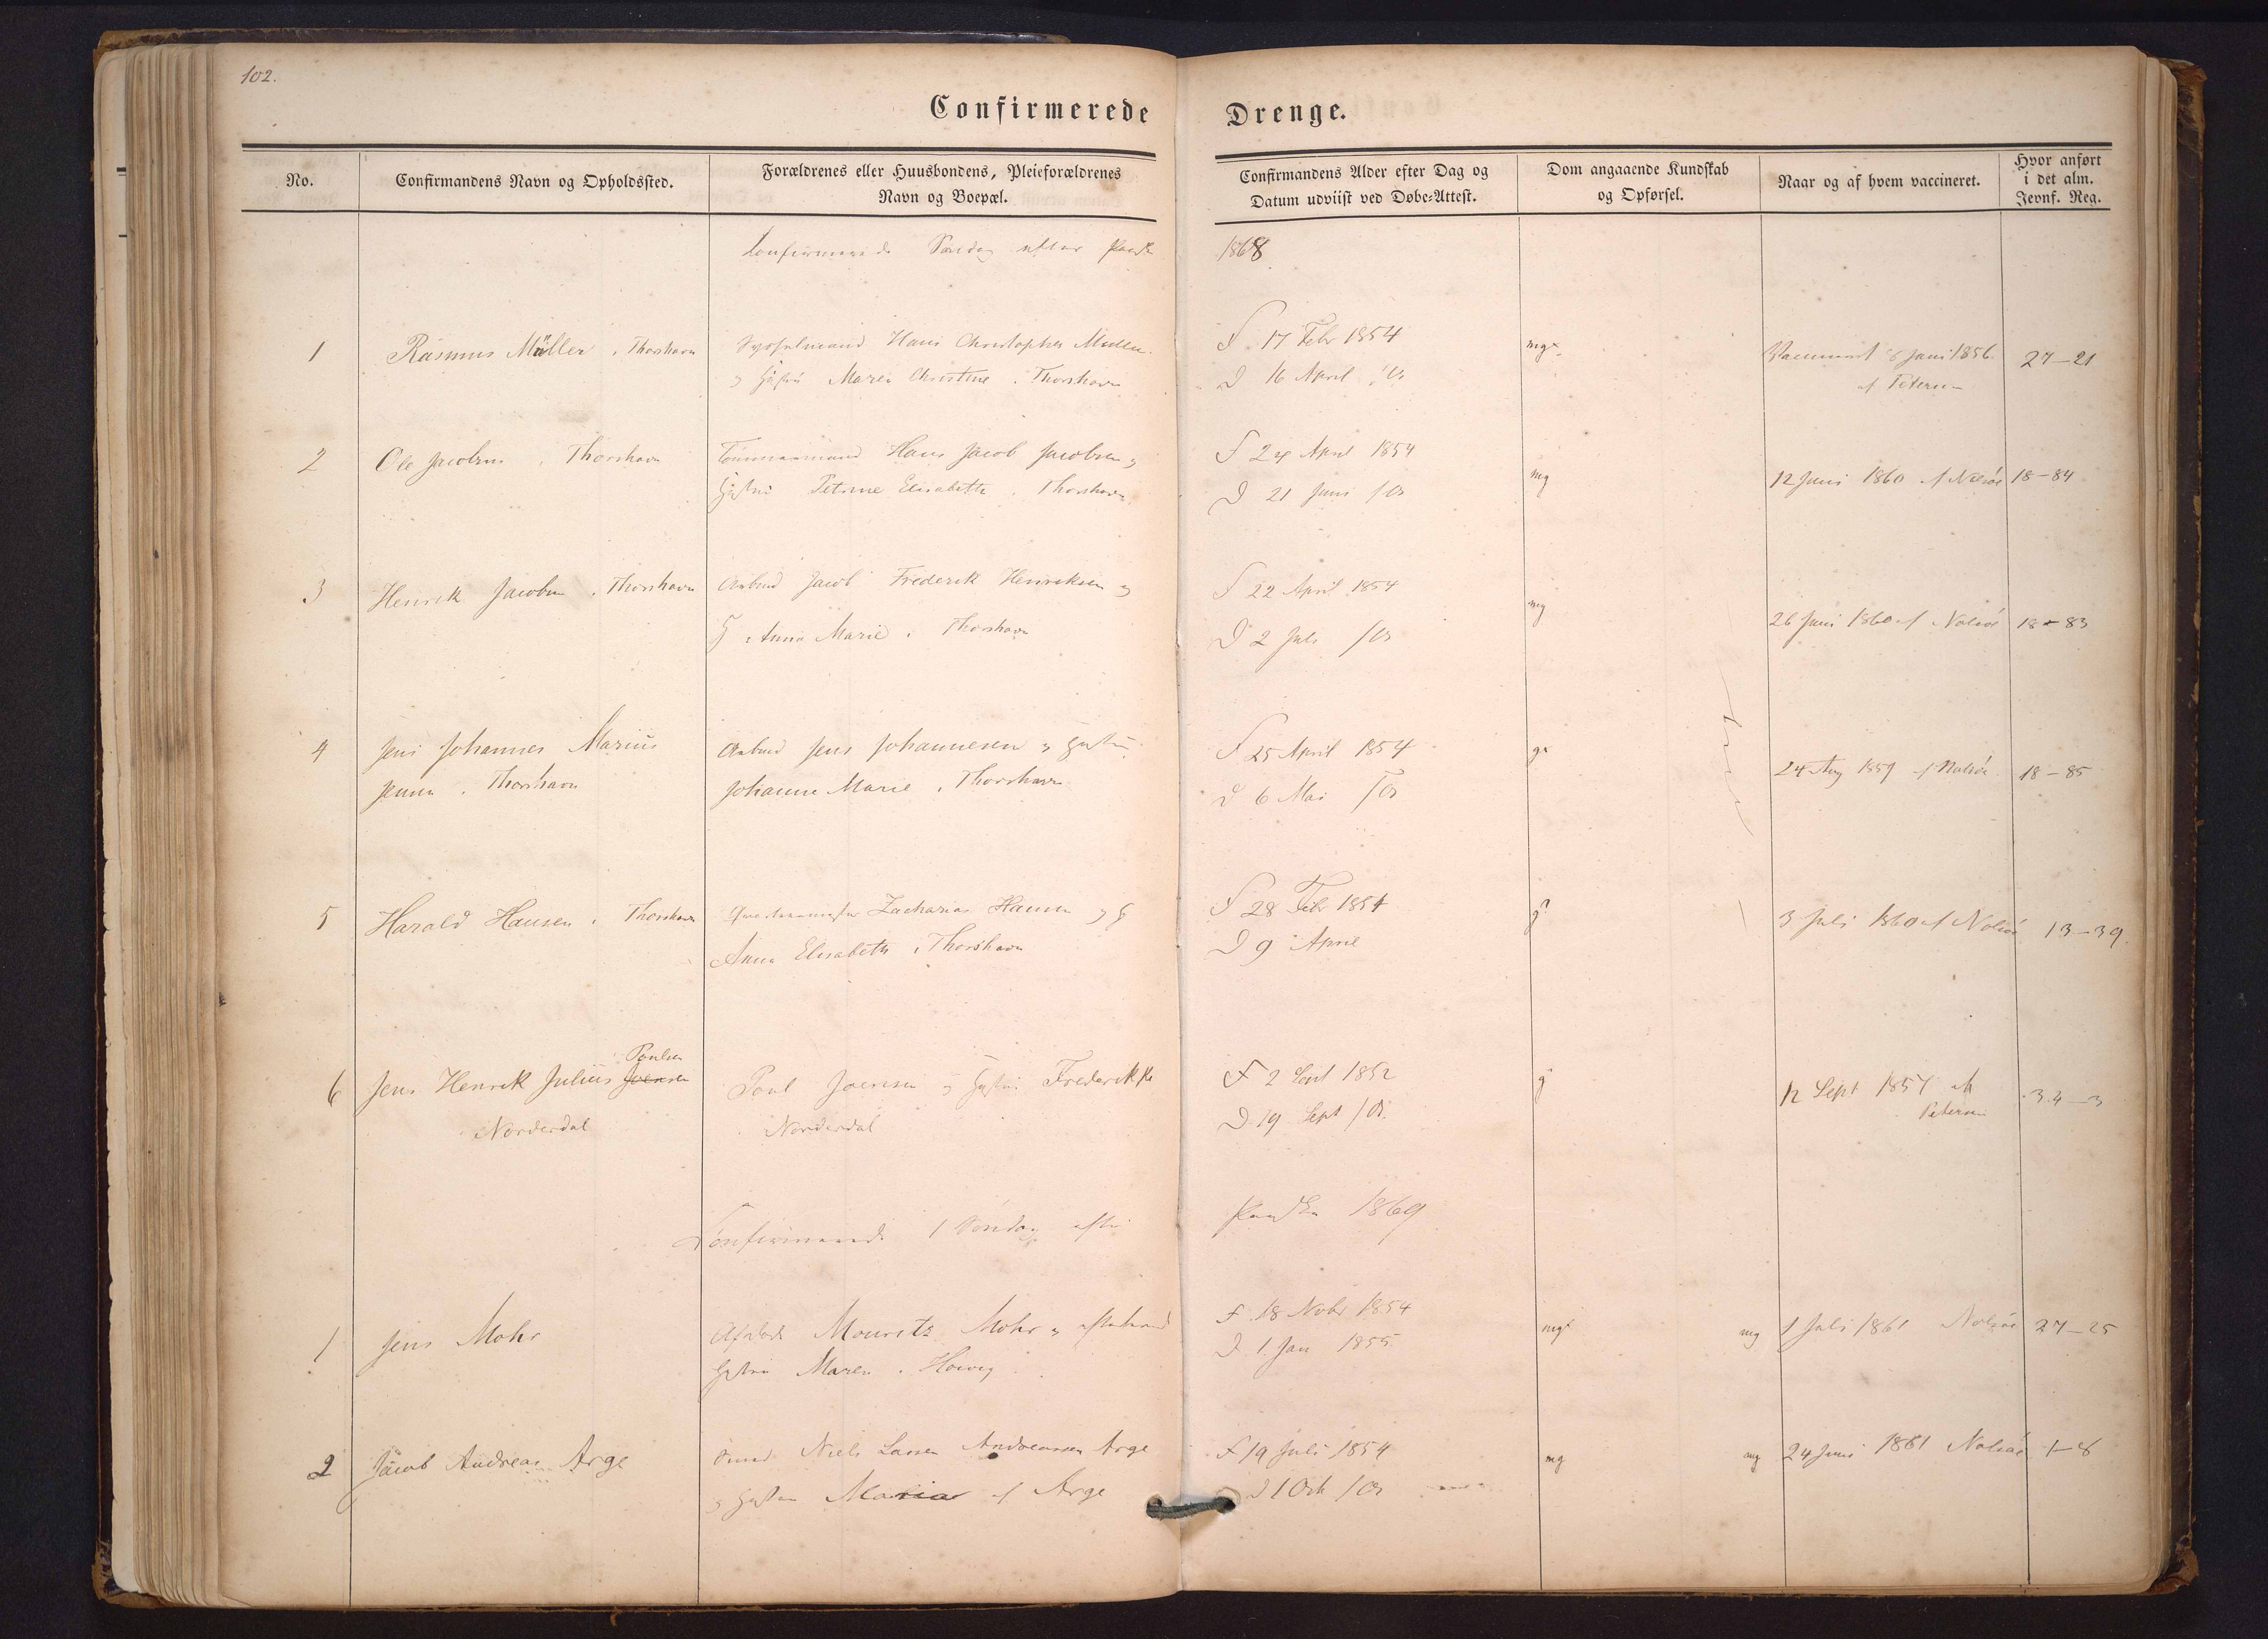 102.
Confirmerede Drenge.
No.
Confirmandens Navn og Opholdssted.
Forældrenes eller Huusbondens, Pleieforældrenes
Navn og Boepæl.
Confirmandens Alder efter Dag og
Datum udviist ved Døbe-Attest.
Dom angaaende Kundskab
og Opførsel.
Naar og af hvem vaccineret.
Hvor anført
i det alm.
Jevnf. Reg.
Confirmerede Søndag efter Paaske
1868
1
Rasmus Müller i Thorshavn
Sysselmand Hans Christopher Müller
og Maren Christine i Thorshavn
F 17 Febr 1854
D 16 April
mg
Juni 1856
af Petersen
27-21
2
Ole Jacobsen i Thorshavn
Tømmermand Hans Jacob Jacobsen og
Hustru Petrine Elisabeth i Thorshavn
F 24 April 1854
D 21 Juni
mg
12 Juni 1860 af Nolsøe
18-84
3
Henrik Jacobsen i Thorshavn
Jacob Frederik Henriksen og
H Anna Marie i Thorshavn
F 22 April 1854
D 2 Juli
mg
26 Juni 1860 af Nolsøe
18-83
4
Jens Johannes Marius
Jensen i Thorshavn
Jens Johannesen og Hustru
Johanne Marie i Thorshavn
F 25 April 1854
D 6 Mai
24 Aug 1859 af Nolsøe
18-85
5
Harald Hansen i Thorshavn
Zacharias Hansen og H
Anna Elisabeth i Thorshavn
F 28 Febr 1854
D 9 April
3 Juli 1860 af Nolsøe
13-39
6
Jens Henrik Julius Joensen
Poulsen
Norderdal
Poul Joensen og Hustru Frederikke
Norderdal
F 2 Sept 1852
D 19 Sept
g
12 Sept 1857 af
Petersen
34-3
Confirmerede 1 Søndag efter
Paaske 1869
1
Jens Mohr
Afdøde Mouritz Mohr og efterladte
Hustru Maren i Hoivig
F. 18 Novbr 1854
D 1. Jan 1855
mg
mg
1 Juli 1861 Nolsøe
27-25
2
Jacob Andreas Arge
Smed Niels Lassen Andreassen Arge
og Hustru Maria af Arge
F 19 Juli 1854
D 1 Oct
mg
mg
24 Juni 1861 Nolsøe
1-8